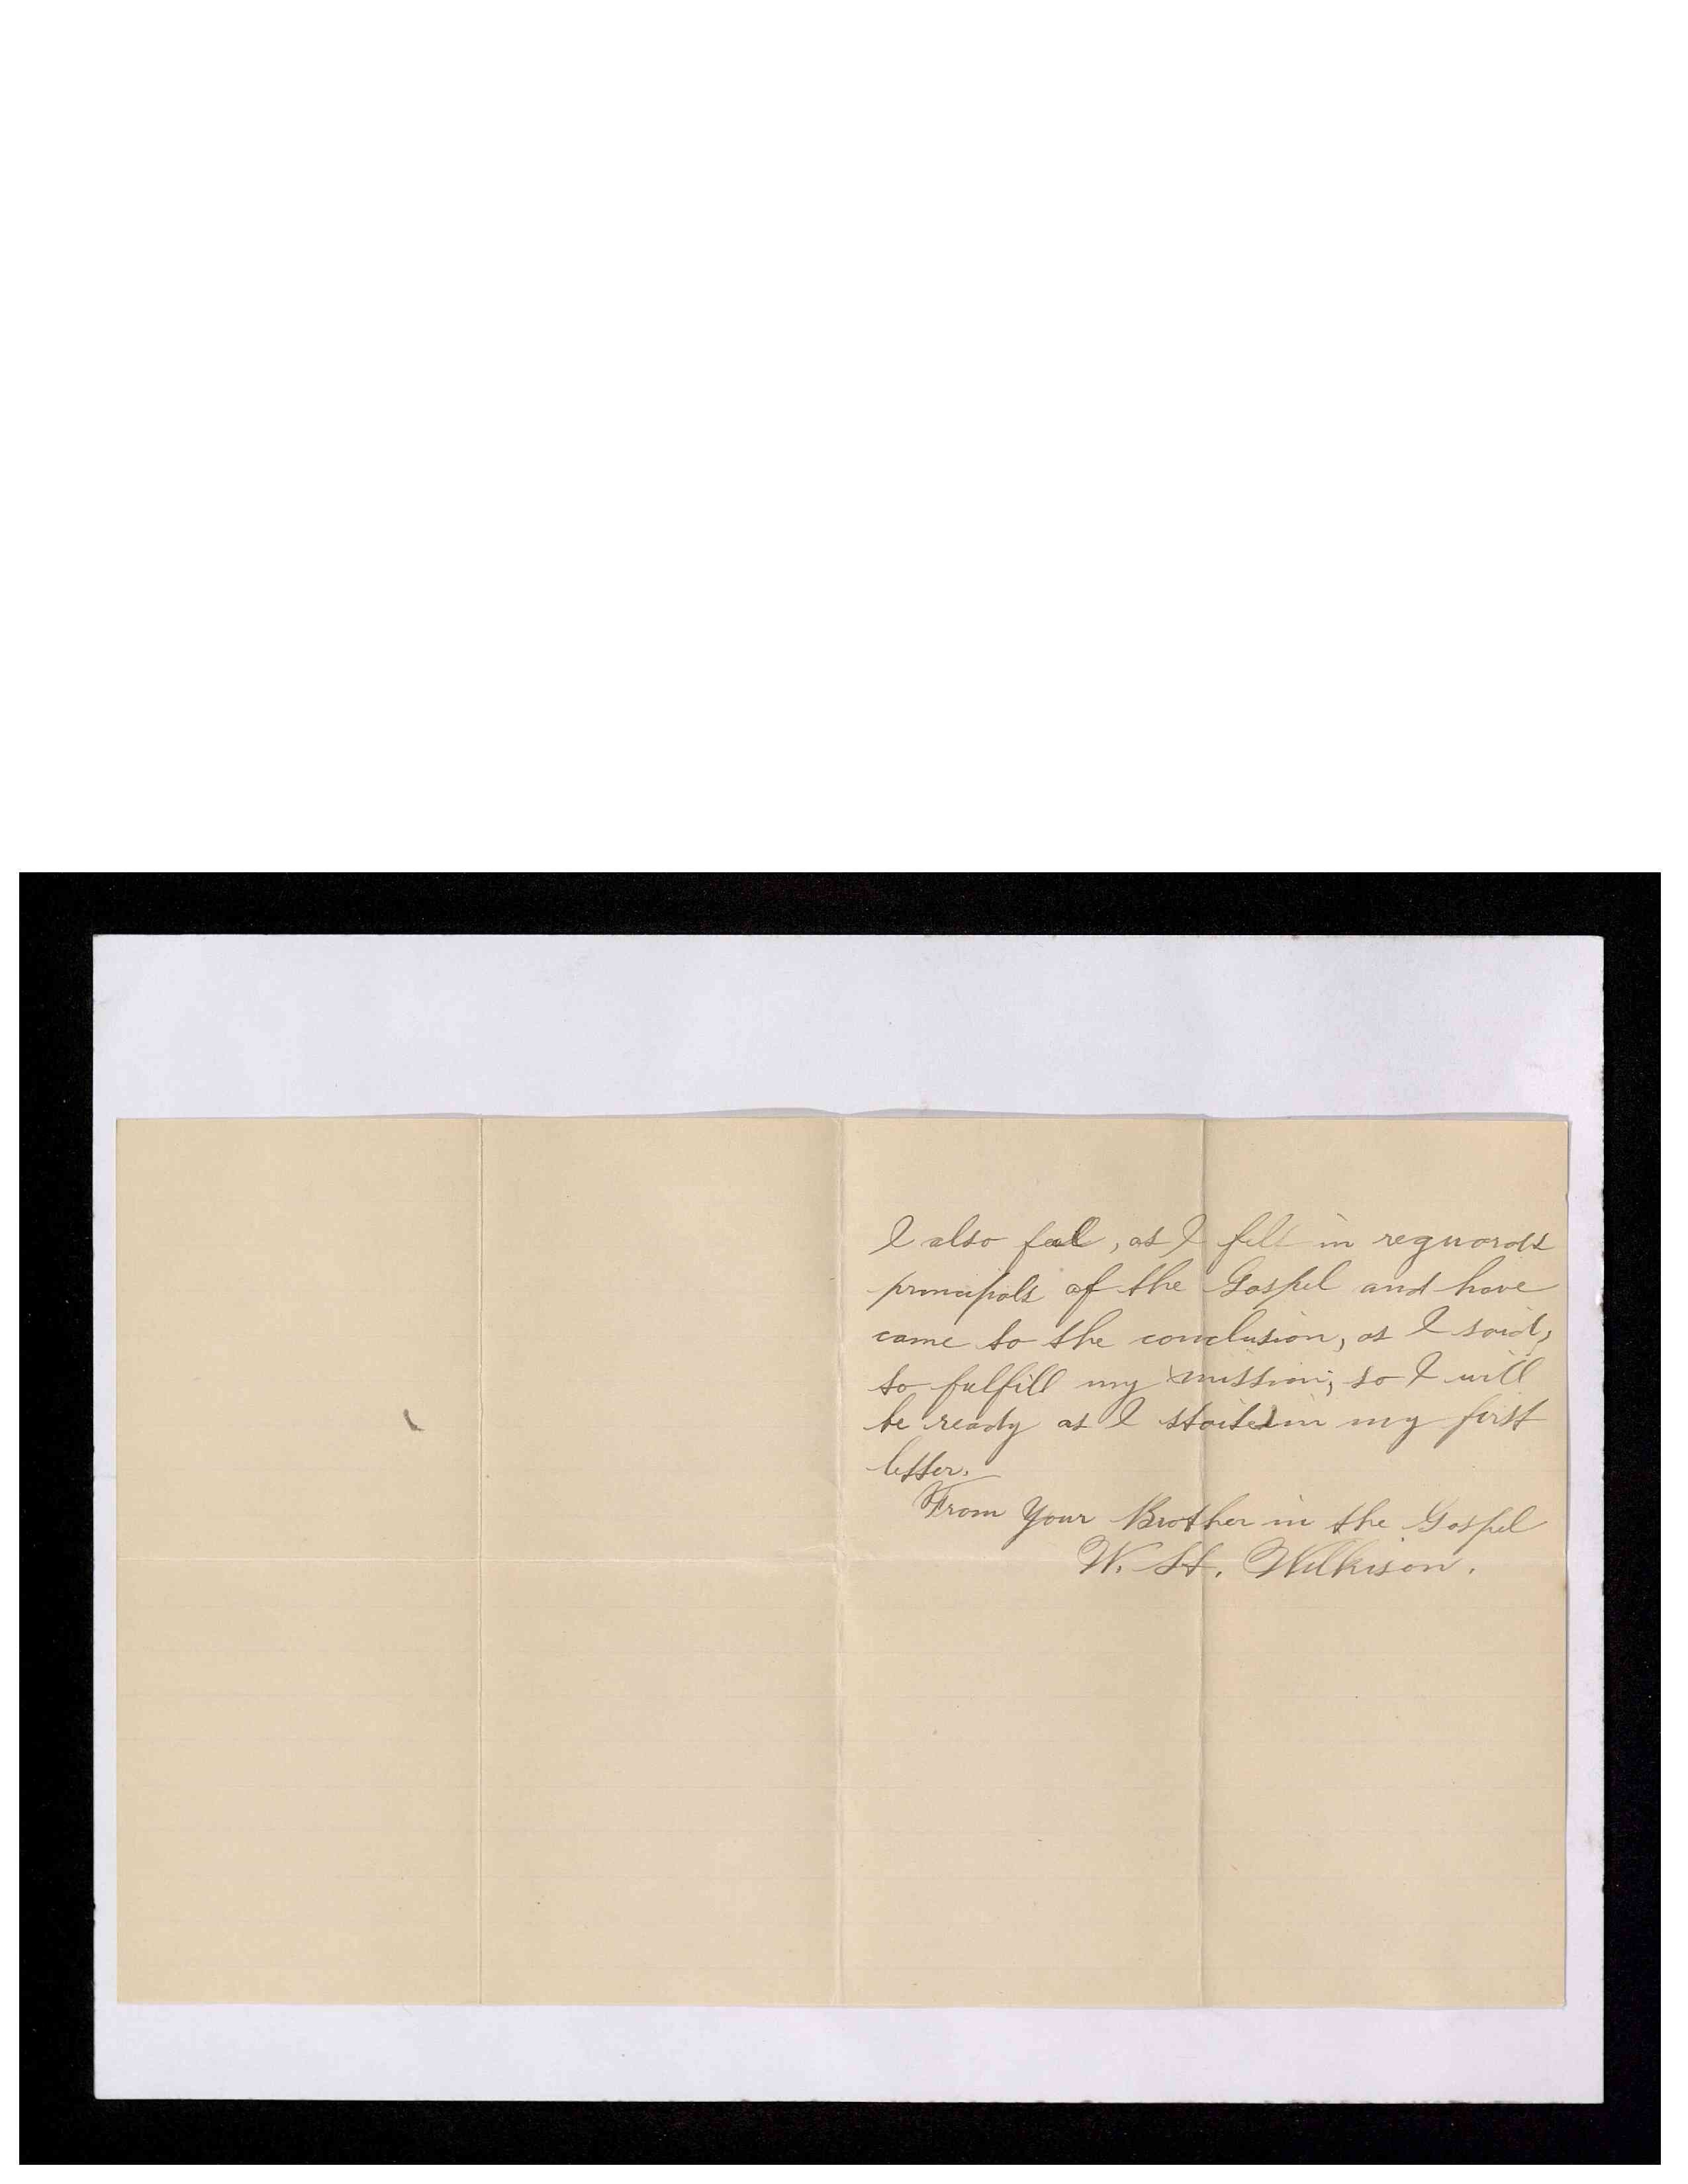 I also feel, as I felt in reguards
principals of the Gospel and have
came to the conclusion, as I said,
to fulfill my mission; so I will
be ready as I stated in my first
letter.
From Your Brother in the Gospel
W. H. Wilkison.